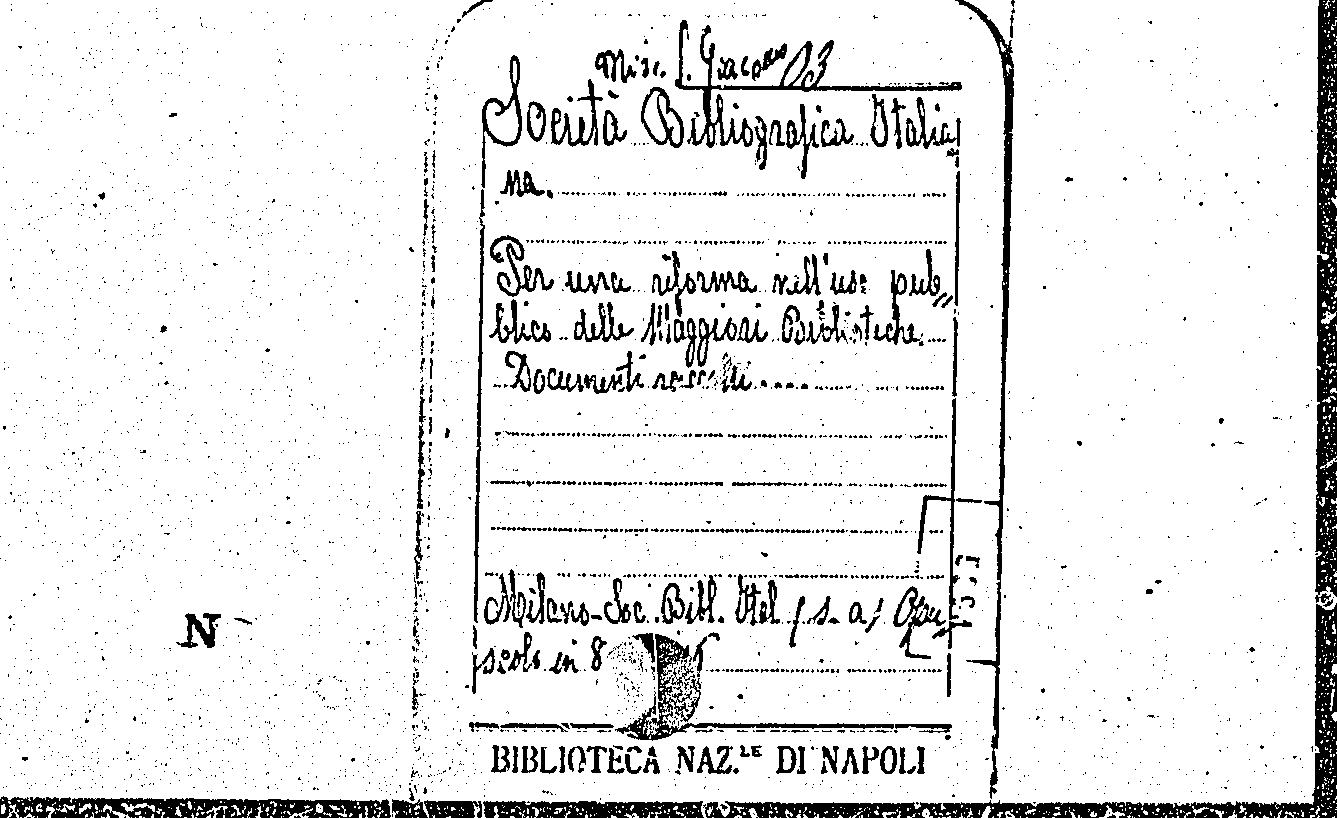 Misc. S. Giacomo 03
Società Bibliografica Italia
na.
Per una riforma nell'uso pub,,
blico delle Maggiori Biblioteche.
Documenti raccolti.....
Milano-Soc. Bibl. Ital (s. a) Opu,,
scolo in 8
BIBLIOTECA NAZ.LE DI NAPOLI
N